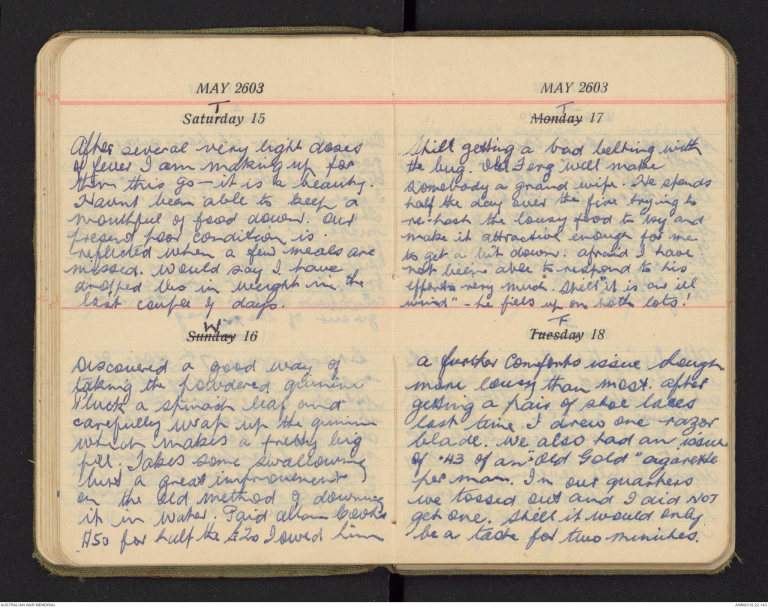 MAY 2603
T
Saturday 15
After several very light doses
of fever I am making up for
them this go - it is a beauty.
Havnt been able to keep a
mouthful of food down. Our
present poor condition is
replicted when a few meals are
missed. Would say I have
dropped lbs in weight in the
last couple of days.
W
Sunday 16
Discovered a good way of
taking the powdered quinine
Pluck a spinach leaf and
carefully wrap up the quinine
which makes a pretty big
pill. Takes some swallowing
but a great improvement
on the old method of downing
it in water. Paid Cooke
A50 for half the £20 I owed him
MAY 2603
T
Monday 17
Still getting a bad belting with
the bug. Old Ferg will make
somebody a grand wife. He spends
half the day over the fire trying to
re-hash the lousy food to try and
make it attractive enough for me
to get a bit down. Afraid I have
not been able to respond to his
efforts very much. Still "it is an ill
wind" - he fills up on both lots!
F
Tuesday 18
A further Comforts issue though
more lousy than most. After
getting a pair of shoe laces
last time I drew one razor
blade. We also had an issue
of .43 of an "Old Gold" cigarette
per man. In our quarters
we tossed out and I did NOT
get one. Still it would only
be a taste for two minutes.
AUSTRALIAN WAR MEMORIAL
AWM2019.22.143